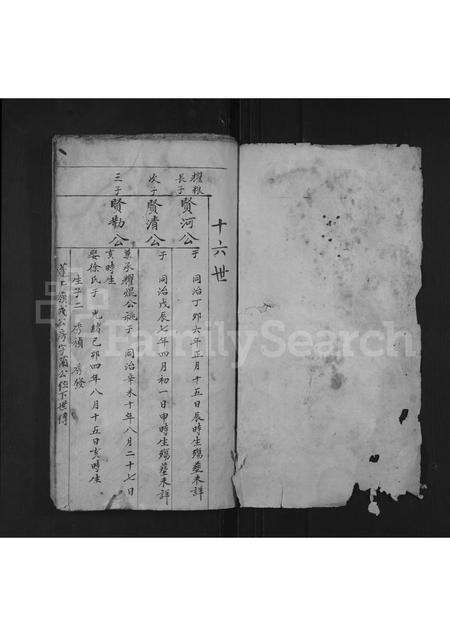 十六世
耀根
長子
賢河公
于 同治丁卯六年正月十五日辰時生殤塟未詳
次子
賢清公
于 同治戊辰七年四月初一日申時生殤塟未詳
三子
賢勸公
兼承耀焜公祧于 同治辛未十年八月二十七日
亥時生
娶徐氏于 光緒己卯四年八月十五日亥時生
生子二
公房字
公後下世傳
FamilySearch